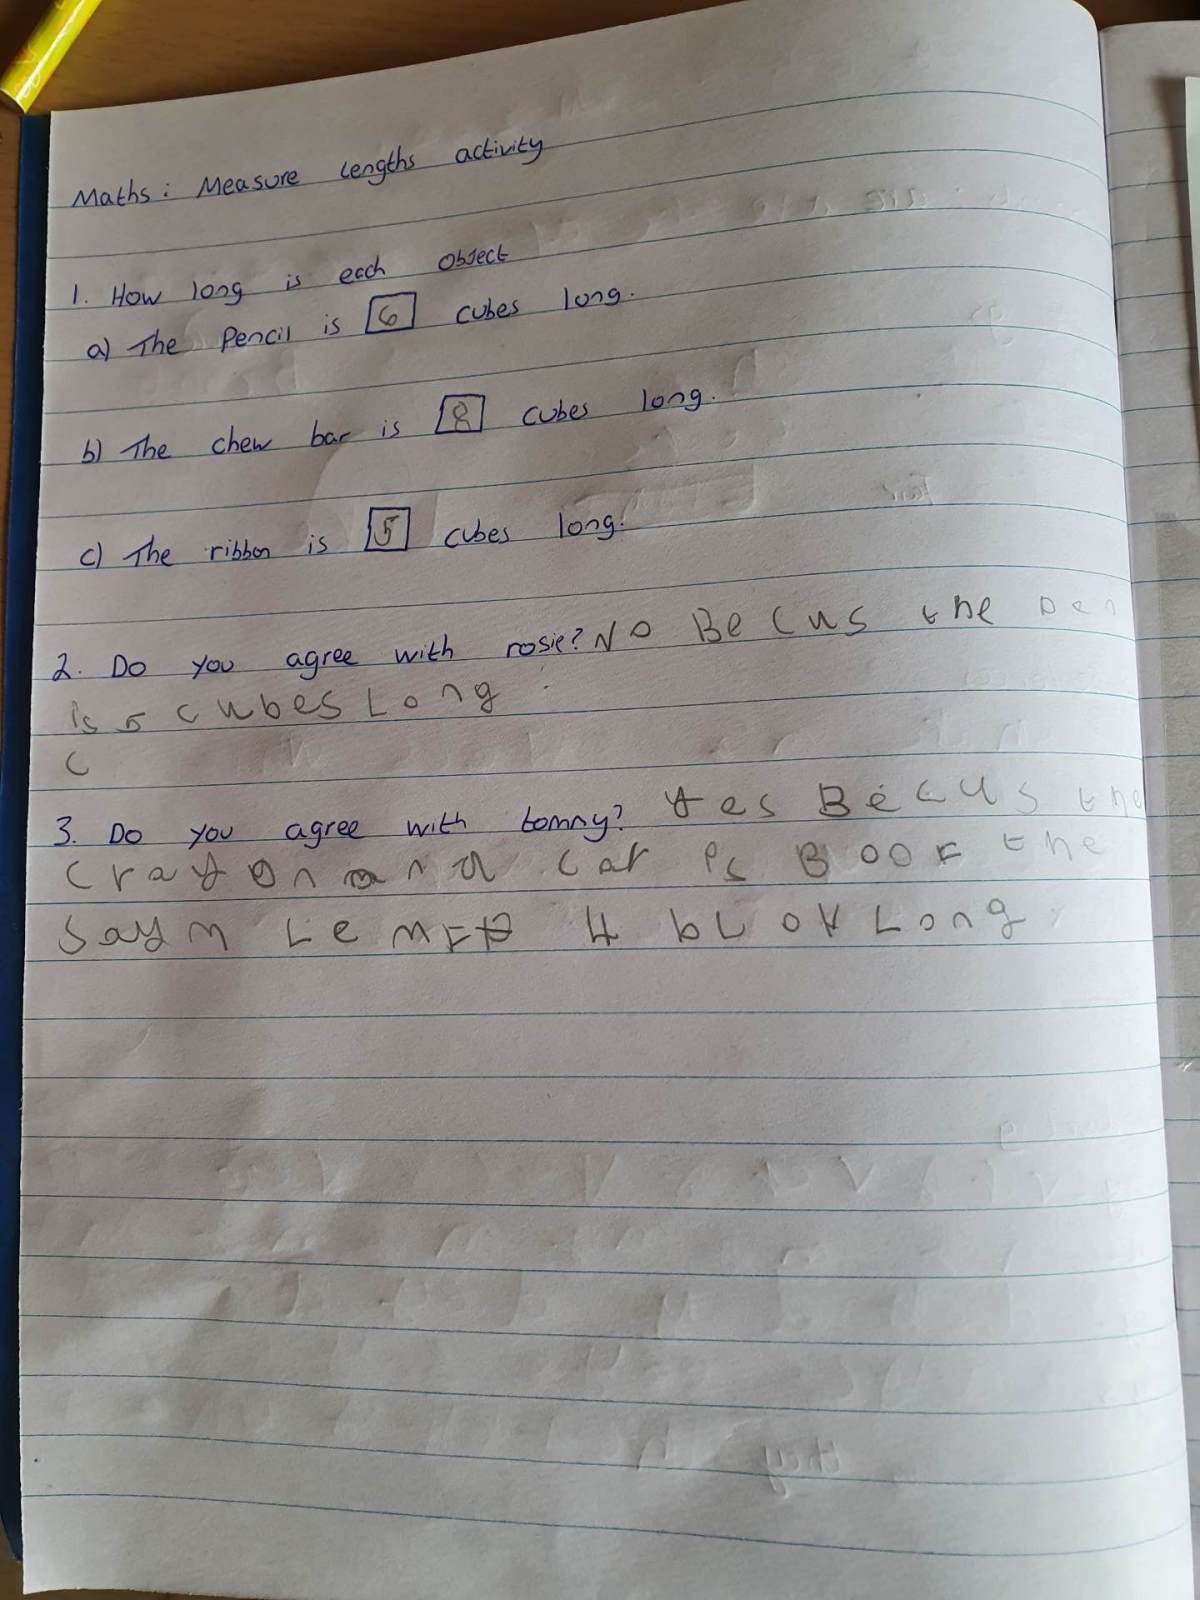 Maths: Measure lengths activity
1. How long is each object
a) The Pencil is 6 cubes long.
b) The chew bar is 8 cubes long.
c) The ribbon is 5 cubes long.
2. Do you agree with rosie? No Becus the pen
is 5 cubes Long
C
3. Do you agree with tommy? Yes Becus the
crayon and car is Boof the
Saym Lenth 4 blok Long
they